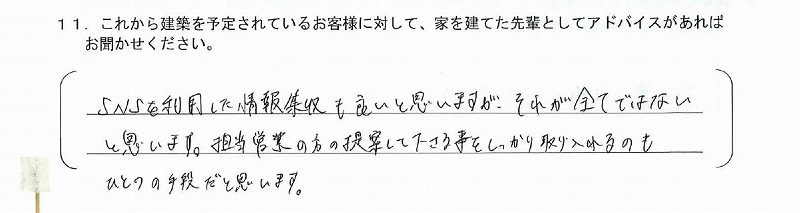 １１．これから建築を予定されているお客様に対して、家を建てた先輩としてアドバイスがあれば
お聞かせください。
SNSを利用した情報集収も良いと思いますが、それが全てではない
と思います。担当営業の方の提案して下さる事をしっかり取り入れるのも
ひとつの手段だと思います。